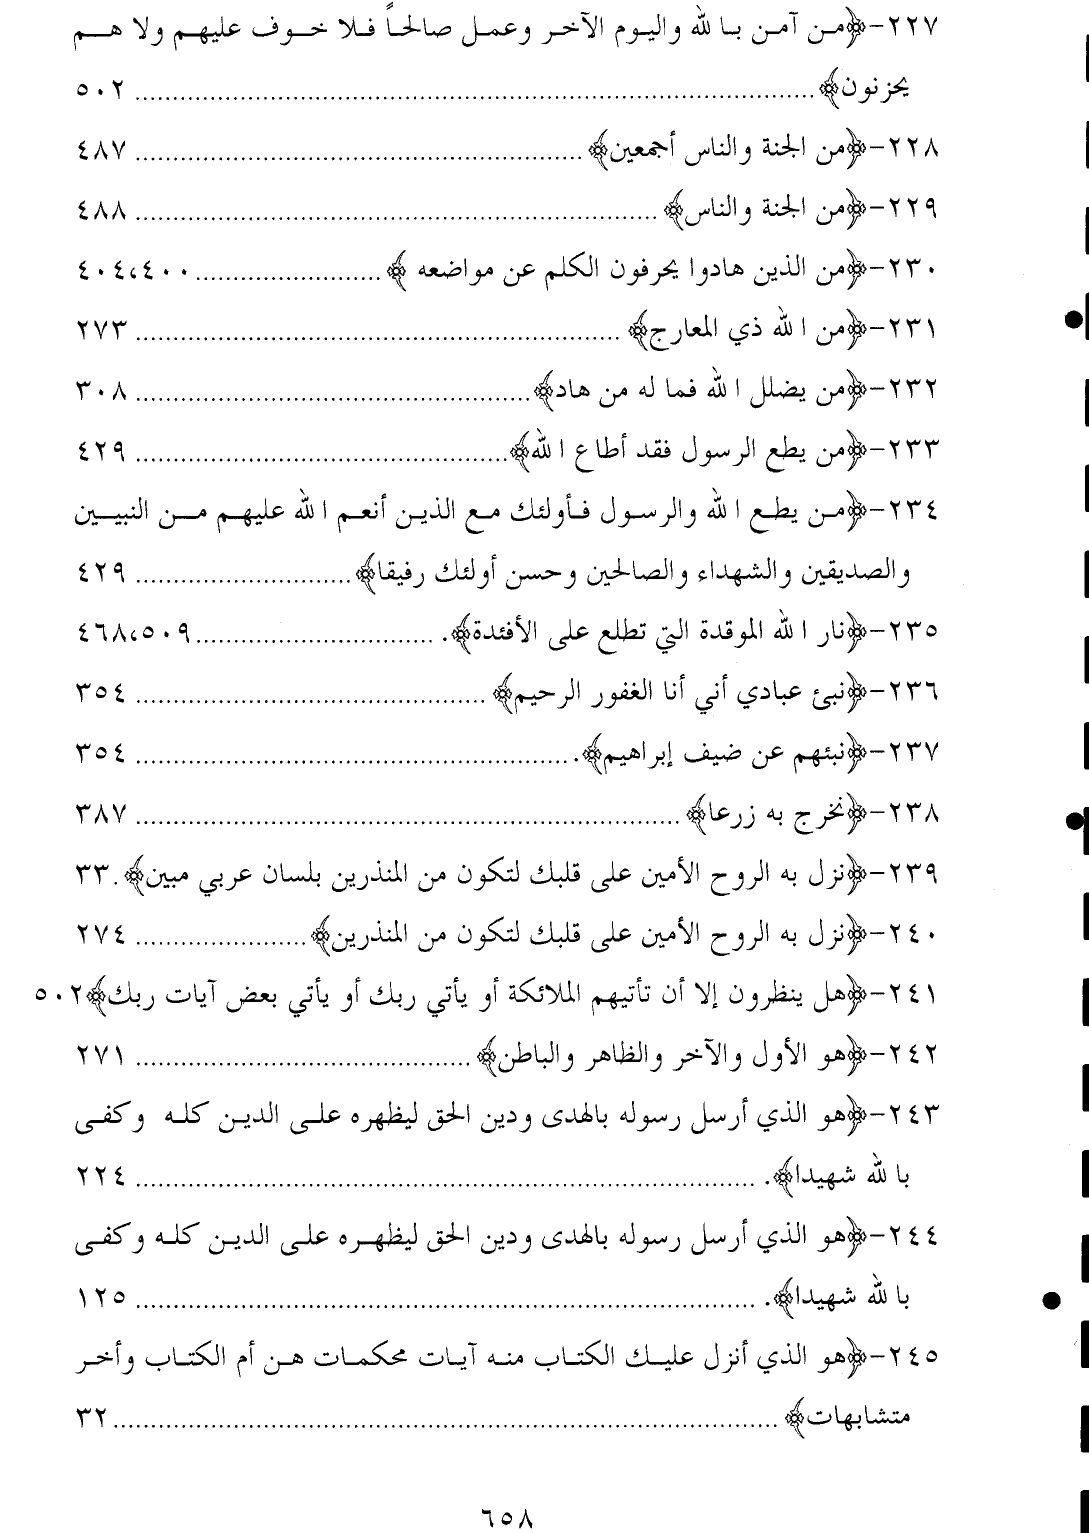 ٢٢٧-﴿من آمن بالله واليوم الآخر وعمل صالحاً فلا خوف عليهم ولا هم
يحزنون﴾ ........................ ٥٠٢
٢٢٨-﴿من الجنة والناس أجمعين﴾ ........................ ٤٨٧
٢٢٩-﴿من الجنة والناس﴾ ........................ ٤٨٨
٢٣٠-﴿من الذين هادوا يحرفون الكلم عن مواضعه ﴾ ........................ ٤٠٤،٤٠٠
٢٣١-﴿من الله ذي المعارج﴾ ........................ ٢٧٣
٢٣٢-﴿من يضلل الله فما له من هاد﴾ ........................ ٣٠٨
٢٣٣-﴿من يطع الرسول فقد أطاع الله﴾ ........................ ٤٢٩
٢٣٤-﴿من يطع الله والرسول فأولئك مع الذين أنعم الله عليهم من النبيين
والصديقين والشهداء والصالحين وحسن أولئك رفيقا﴾ ........................ ٤٢٩
٢٣٥-﴿نار الله الموقدة التي تطلع على الأفئدة﴾. ........................ ٤٦٨،٥٠٩
٢٣٦-﴿نبئ عبادي أني أنا الغفور الرحيم﴾ ........................ ٣٥٤
٢٣٧-﴿نبئهم عن ضيف إبراهيم﴾. ........................ ٣٥٤
٢٣٨-﴿نخرج به زرعا﴾ ........................ ٣٨٧
٢٣٩-﴿نزل به الروح الأمين على قلبك لتكون من المنذرين بلسان عربي مبين﴾ .٣٣
٢٤٠-﴿نزل به الروح الأمين على قلبك لتكون من المنذرين﴾ ........................ ٢٧٤
٢٤١-﴿هل ينظرون إلا أن تأتيهم الملائكة أو يأتي ربك أو يأتي بعض آيات ربك﴾٥٠٢
٢٤٢-﴿هو الأول والآخر والظاهر والباطن﴾ ........................ ٢٧١
٢٤٣-﴿هو الذي أرسل رسوله بالهدى ودين الحق ليظهره على الدين كله وكفى
بالله شهيدا﴾. ........................ ٢٢٤
٢٤٤-﴿هو الذي أرسل رسوله بالهدى ودين الحق ليظهره على الدين كله وكفى
بالله شهيدا﴾. ........................ ١٢٥
٢٤٥-﴿هو الذي أنزل عليك الكتاب منه آيات محكمات هن أم الكتاب وأخر
متشابهات﴾ ........................ ٣٢
٦٥٨